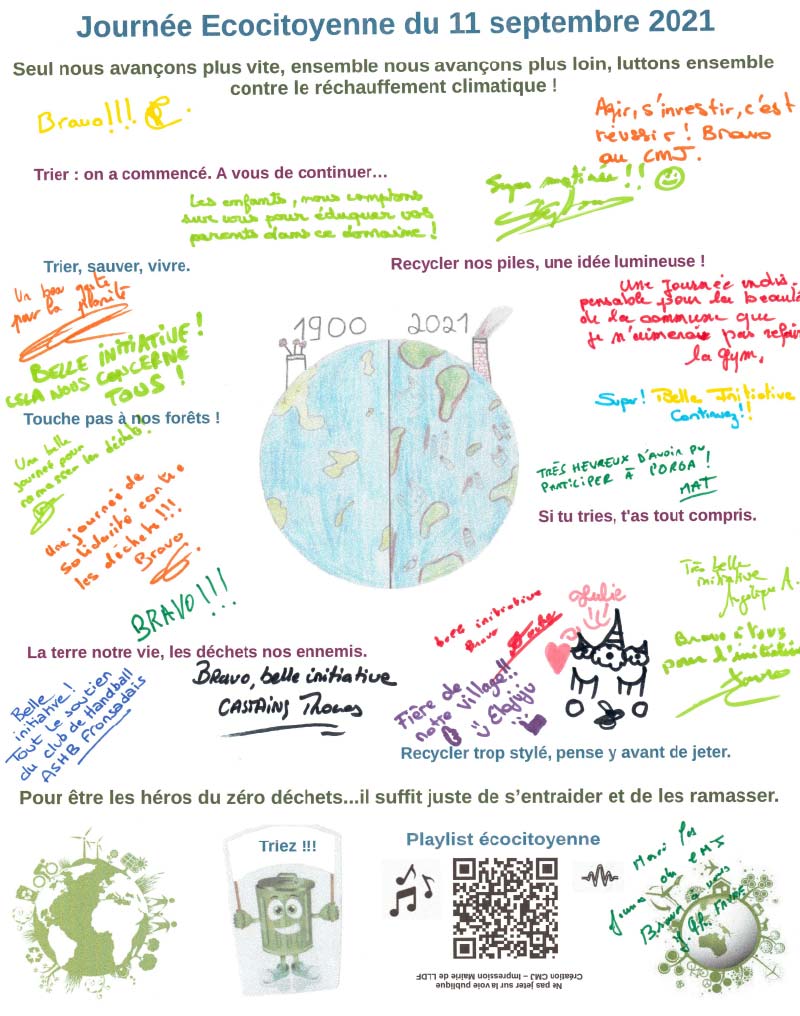 Journée Ecocitoyenne du 11 septembre 2021
Seul nous avançons plus vite, ensemble nous avançons plus loin, luttons ensemble
contre le réchauffement climatique !
Bravo!!!
Agir, s'investir, c'est
réussir ! Bravo
au CMJ.
Trier : on a commencé. A vous de continuer…
Super matinée !!
Les enfants, nous comptons
sur vous pour éduquer vos
parents dans ce domaine !
Trier, sauver, vivre.
Recycler nos piles, une idée lumineuse !
Un beau geste
pour la planète
Une Journée indis-
pensable pour la beauté
de la commune que
je n'aimerais pas refaire
la gym.
1900
2021
BELLE INITIATIVE !
CELA NOUS CONCERNE
TOUS !
Super! Belle Initiative
Continuez!!
Touche pas à nos forêts !
Une belle
journée pour
ramasser les déchets !
TRÈS HEUREUX D'AVOIR PU
PARTICIPER À L'ORGA !
MAT
Une journée de
solidarité contre
les déchets!!!
Bravo
Si tu tries, t'as tout compris.
Très belle
initiative
Angélique A.
BRAVO!!!
belle initiative
Bravo
Julie
Bravo à tous
pour l'initiative
La terre notre vie, les déchets nos ennemis.
Bravo, belle initiative
CASTAING Thomas
Belle
initiative !
Tout le soutien
du club de Handball
ASHB Fronsadais
Fière de
notre village!!
Elojuju
Recycler trop stylé, pense y avant de jeter.
Pour être les héros du zéro déchets...il suffit juste de s'entraider et de les ramasser.
Triez !!!
Playlist écocitoyenne
Merci les
jeunes du CMJ
Bravo à vous
FAVRE
Ne pas jeter sur la voie publique
Création CMJ – Impression Mairie de LLDF